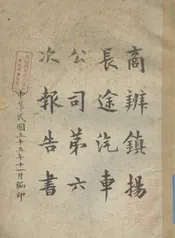 商辦鎮揚
長途汽車
公司第六
次報告書
中華民國三十五年十一月編印